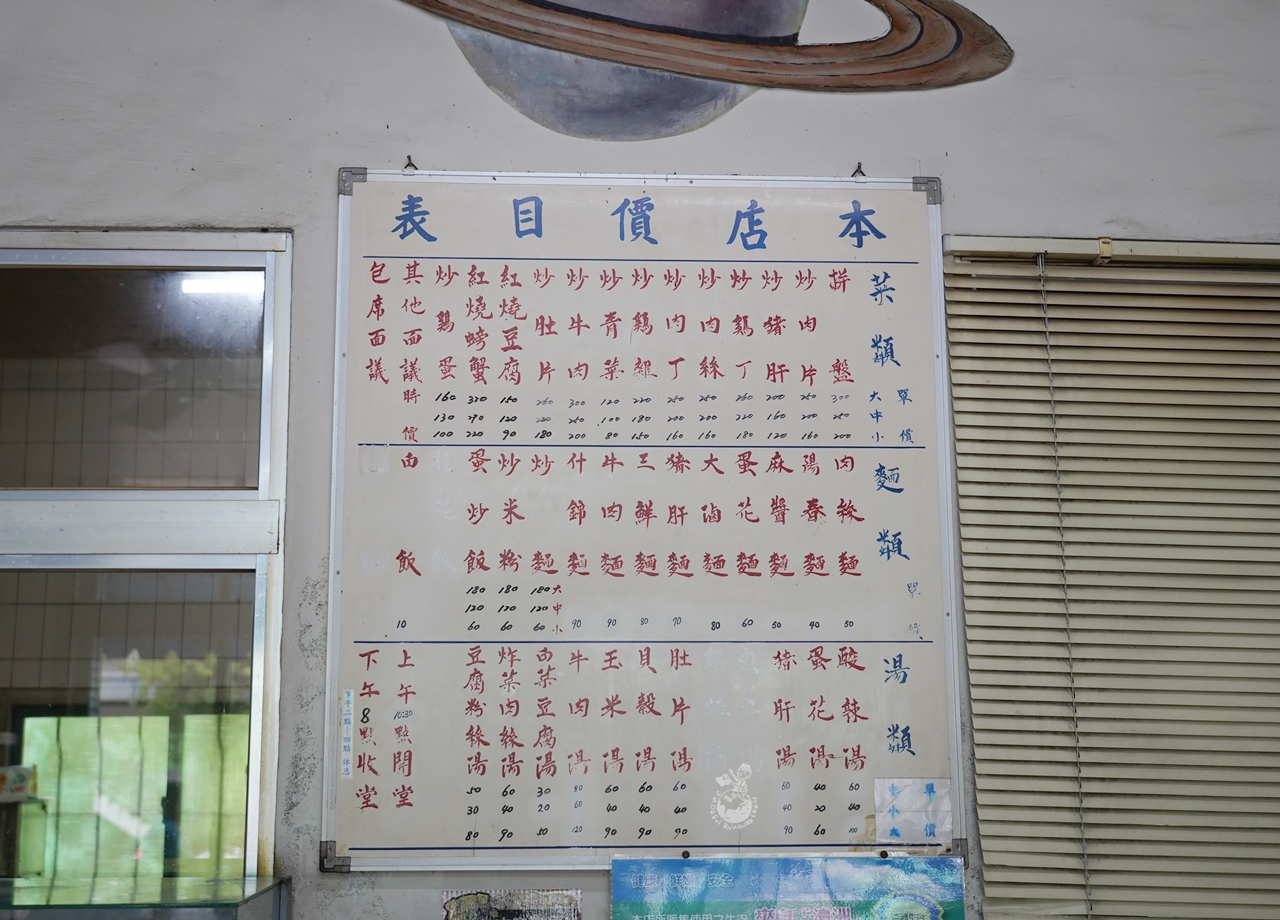 本店價目表
菜類 單價 大中小
拼盤 300 250 200
炒肉片 250 200 160
炒豬肝 200 160 120
炒鷄丁 260 220 180
炒肉絲 250 200 160
炒肉丁 250 200 160
炒鷄雜 220 180 150
炒青菜 120 100 80
炒牛肉 300 250 200
炒肚片 260 220 180
紅燒豆腐 150 120 90
紅燒螃蟹 320 270 220
炒鷄蛋 160 130 100
其他面議時價
包席面議
麵類 單價
肉絲麵 50
陽春麵 40
麻醬麵 50
蛋花麵 60
大滷麵 80
豬肝麵 70
三鮮麵 80
牛肉麵 90
什錦麵 90
炒麵 大180 中120 小60
炒米粉 180 120 60
蛋炒飯 180 120 60
白飯 10
湯類 單價 小 大
酸辣湯 60 40 100
蛋花湯 40 20 60
豬肝湯 60 40 90
肚片湯 60 40 90
貝殼湯 60 40 90
玉米湯 60 40 90
牛肉湯 80 60 120
白菜豆腐湯 30 20 50
炸菜肉絲湯 60 40 90
豆腐粉絲湯 50 30 80
上午10:30點開堂
下午8點收堂
下午二點 四點 休息